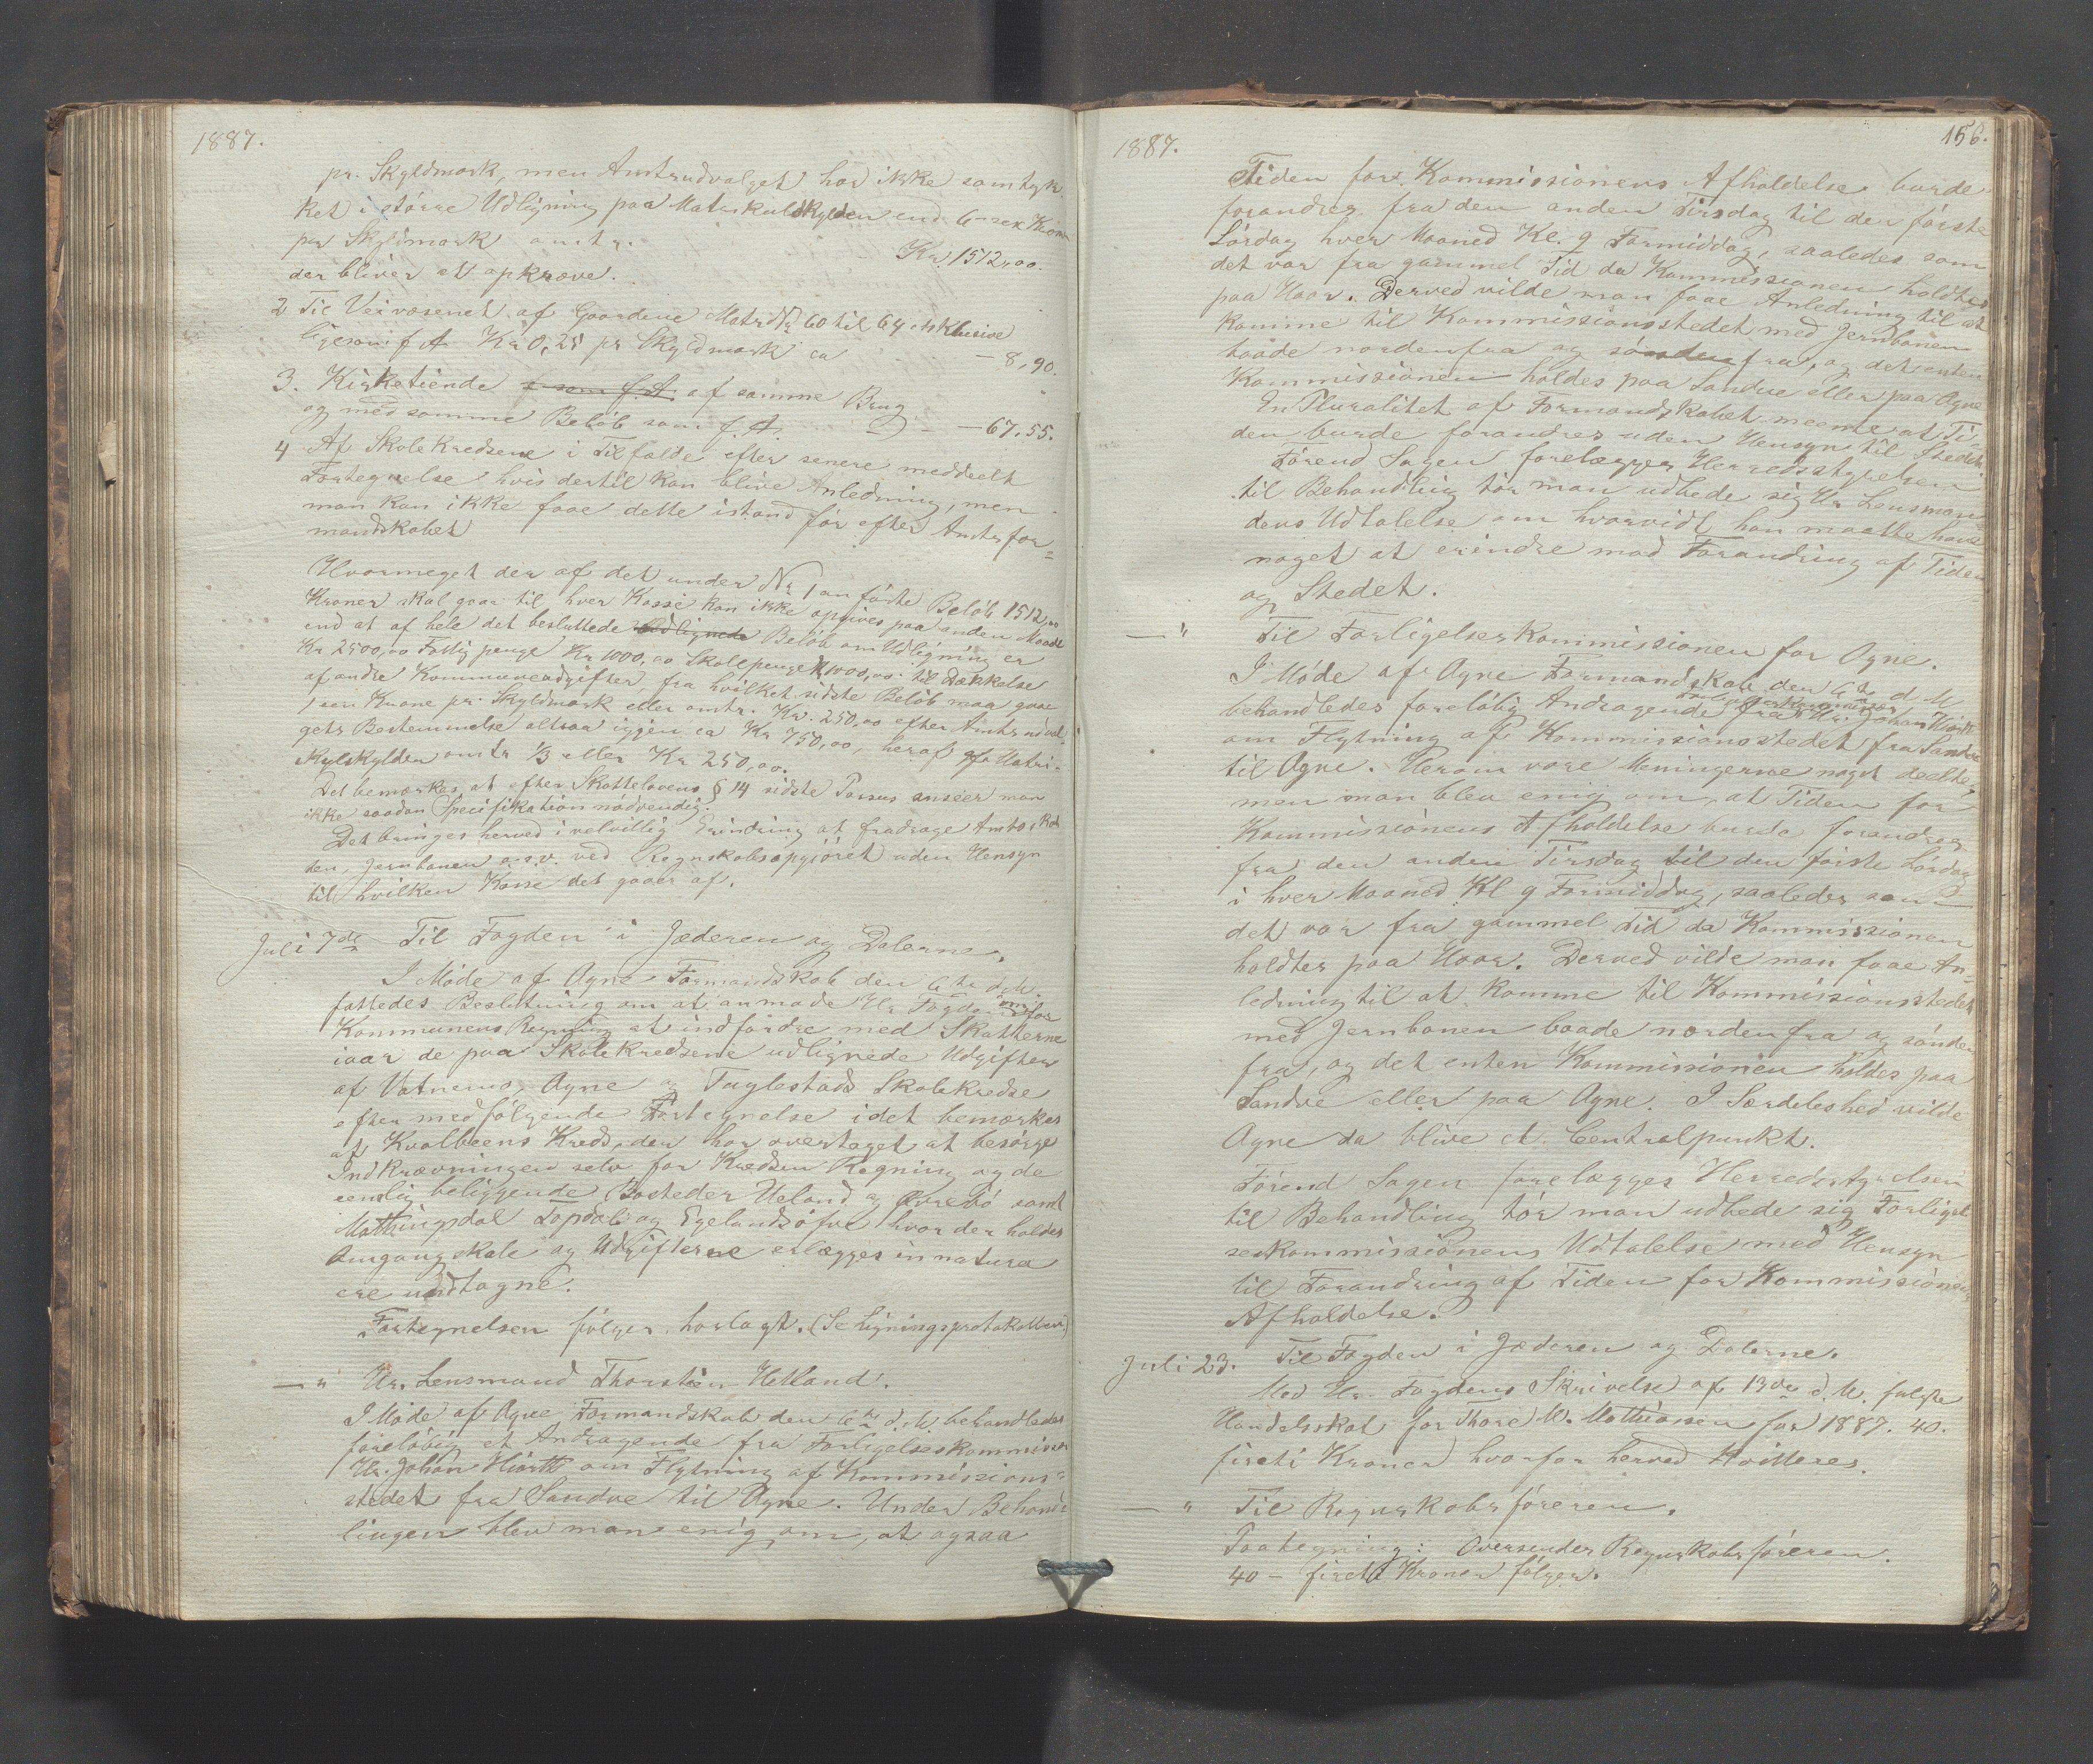 1887.
pr. Skyldmark, men Amtsudvalget har ikke samtyk
ket i större Udligning paa Matrikulskylden end 6 - sex Kroner
per Skyldmark omtr.
Kr. 1512,00.
der bliver at opkræve.
2 Til Veivæsenet af Gaardene Matr. Nr 60 til 64 inklusive
ligesom f. A. Kr 0,25 pr Skyldmark ca - 8,90.
3. Kirketiende som f. A. af samme Brug
og med samme Belöb som f. A. - 67,55.
4 Af Skolekredsene i Tilfælde efter senere meddeelt
Fortegnelse hvis dertil kan blive Anledning, men
man kan ikke faae dette istand för efter Amtsfor=
mandskabet
Hvormeget der af det under Nr 1 anförte Belöb 1512,00
Kroner skal gaae til hver Kasse kan ikke opgives paa anden Maade
end at af hele det besluttede Udlignede Belöb om Udligning er
Kr 2500,00 Fattigpenge Kr 1000,00 Skolepenge 1000,00 til Dækkelse
af andre Kommuneudgifter, fra hvilket sidste Belöb maa gaae
1 een Krone pr. Skyldmark eller omtr. Kr. 250,00 efter Amtsudval-
gets Bestemmelse altsaa igjen ca Kr 750,00, heraf af Matri-
kulskylden omtr 1/3 eller Kr 250,00.
Det bemærkes, at efter Skattelovens § 14 sidste Passus anseer man
ikke saadan Specifikation nödvendig.
Det bringes herved i velvillig Erindring at fradrage Amtsskat
ten, Jernbanen o.s.v. ved Regnskabsopgjöret uden Hensyn
til hvilken Kasse det gaaer af.
Juli 7de Til Fogden i Jæderen og Dalerne.
I Möde af Ogne Formandskab den 6te d. M.
fattedes Beslutning om at anmode Hr. Fogden om for
Kommunens Regning at indfordre med Skatterne
iaar de paa Skolekredsene udlignede Udgifter
af Vatnemo, Ogne og Fuglestads Skolekredse
efter medfölgende Fortegnelse idet bemærkes
at Kvalbeens Kreds, der har overtaget at besörge
Indkrævningen selv for Kredsen Regning og de
eenslig beliggende Bosteder Ueland og Övrebö samt
Mathingsdal Lopdal og Egelandsöfre hvor der holdes
Omgangsskole og Udgifterne erlægges in natura
ere undtagne.
Fortegnelsen fölger herlagt. (Se Ligningsprotokollen)
— " Hr. Lensmand Thorstein Hetland.
I Möde af Ogne Formandskab den 6te d. M. behandledes
foreløbig et Andragende fra Forligelseskommissær
Hr. Johan Hiorth om Flytning af Kommissions=
stedet fra Sandve til Ogne. Under Behand=
lingen blev man enig om, at ogsaa
1887.
156.
Tiden for Kommissionens Afholdelse burde
forandres fra den anden Tirsdag til den förste
Lördag hver Maaned Kl. 9 Formiddag, saaledes som
det var fra gammel Tid da Kommissionen holdtes
paa Haar. Derved vilde man faae Anledning til at
komme til Kommissionsstedet med Jernbanen
baade nordenfra og söndenfra, og det enten
Kommissionen holdes paa Sandve eller paa Ogne
En Pluralitet af Formandskabet meente at Ti-
den burde forandres uden Hensyn til Stedet.
Förend Sagen forelægges Herredsstyrelsen
til Behandling tör man udbede sig Hr. Lensman-
dens Udtalelse om hvorvidt han maatte have
noget at erindre mod Forandring af Tiden
og Stedet.
— " Til Forligelseskommissionen for Ogne.
I Möde af Ogne Formandskab den 6te d. M.
behandledes foreløbig Andragende fra Forligelseskommissær Hr. Johan Hiorth
om Flytning af Kommissionsstedet fra Sandve
til Ogne. Herom vare Meningerne noget deelte,
men man blev enig om, at Tiden for
Kommissionens Afholdelse burde forandres
fra den anden Tirsdag til den förste Lördag
i hver Maaned Kl 9 Formiddag, saaledes som
det var fra gammel Tid da Kommissionen
holdtes paa Haar. Derved vilde man faae An-
ledning til at komme til Kommissionsstedet
med Jernbanen baade nordenfra og sönden
fra, og det enten Kommissionen holdes paa
Sandve eller paa Ogne. I Særdeleshed vilde
Ogne da blive et Centralpunkt.
Förend Sagen forelægges Herredsstyrelsen
til Behandling tör man udbede sig Forligel
seskommissionens Udtalelse med Hensyn
til Forandring af Tiden for Kommissionens
Afholdelse.
Juli 23. Til Fogden i Jæderen og Dalerne.
Med Hr. Fogdens Skrivelse af 13de d. M. fulgte
Handelsskat for Thore M. Mathiassen for 1887. 40.
firti Kroner hvorfor herved kvitteres.
— " Til Regnskabsföreren.
Paategning: Oversendes Regnskabsföreren.
40 - firti Kroner fölger.